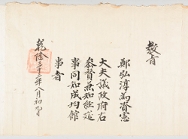 教旨
鄭弘淳爲資憲
大夫議政府右
參贊兼知經筵
事同知成均館
事者
乾隆三十六年八月初